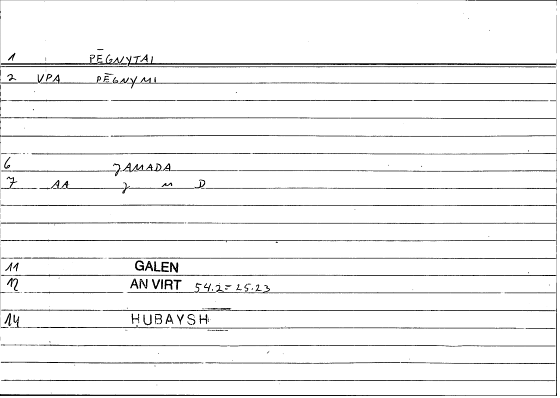 1 PĒGNYTAI
2 VPA PĒGNYMI
6 JAMADA
7 AA J M D
11 GALEN
12 AN VIRT 54.2=25.23
14 HUBAYSH